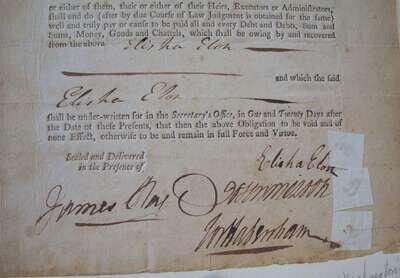 or either of them, their or either of their Heirs, Executors or Administrators,
shall and do (after by due Course of Law Judgment is obtained for the same)
well and truly pay or cause to be paid all and every Debt and Debts, Sum and
Sums, Money, Goods and Chattels, which shall be owing by and recovered
from the above Elisha Elon
and which the said
Elisha Elon
shall be under-written for in the Secretary's Office, in One and Twenty Days after
the Date of these Presents, that then the above Obligation to be void and of
none Effect, otherwise to be and remain in full Force and Virtue.
Sealed and Delivered
in the Presence of
Elisha Elon
James